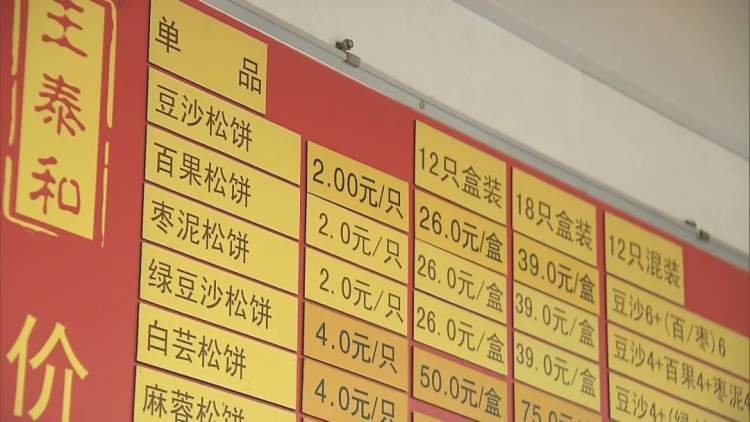 王泰和
价
单品 12只盒装 18只盒装 12只混装
豆沙松饼 2.00元/只 26.0元/盒 39.0元/盒 豆沙6+(百/枣)6
百果松饼 2.0元/只 26.0元/盒 39.0元/盒 豆沙4+百果4+枣泥4
枣泥松饼 2.0元/只 26.0元/盒 39.0元/盒 豆沙4+(绿
绿豆沙松饼 4.0元/只 50.0元/盒 75.0元
白芸松饼 4.0元/只
麻蓉松饼